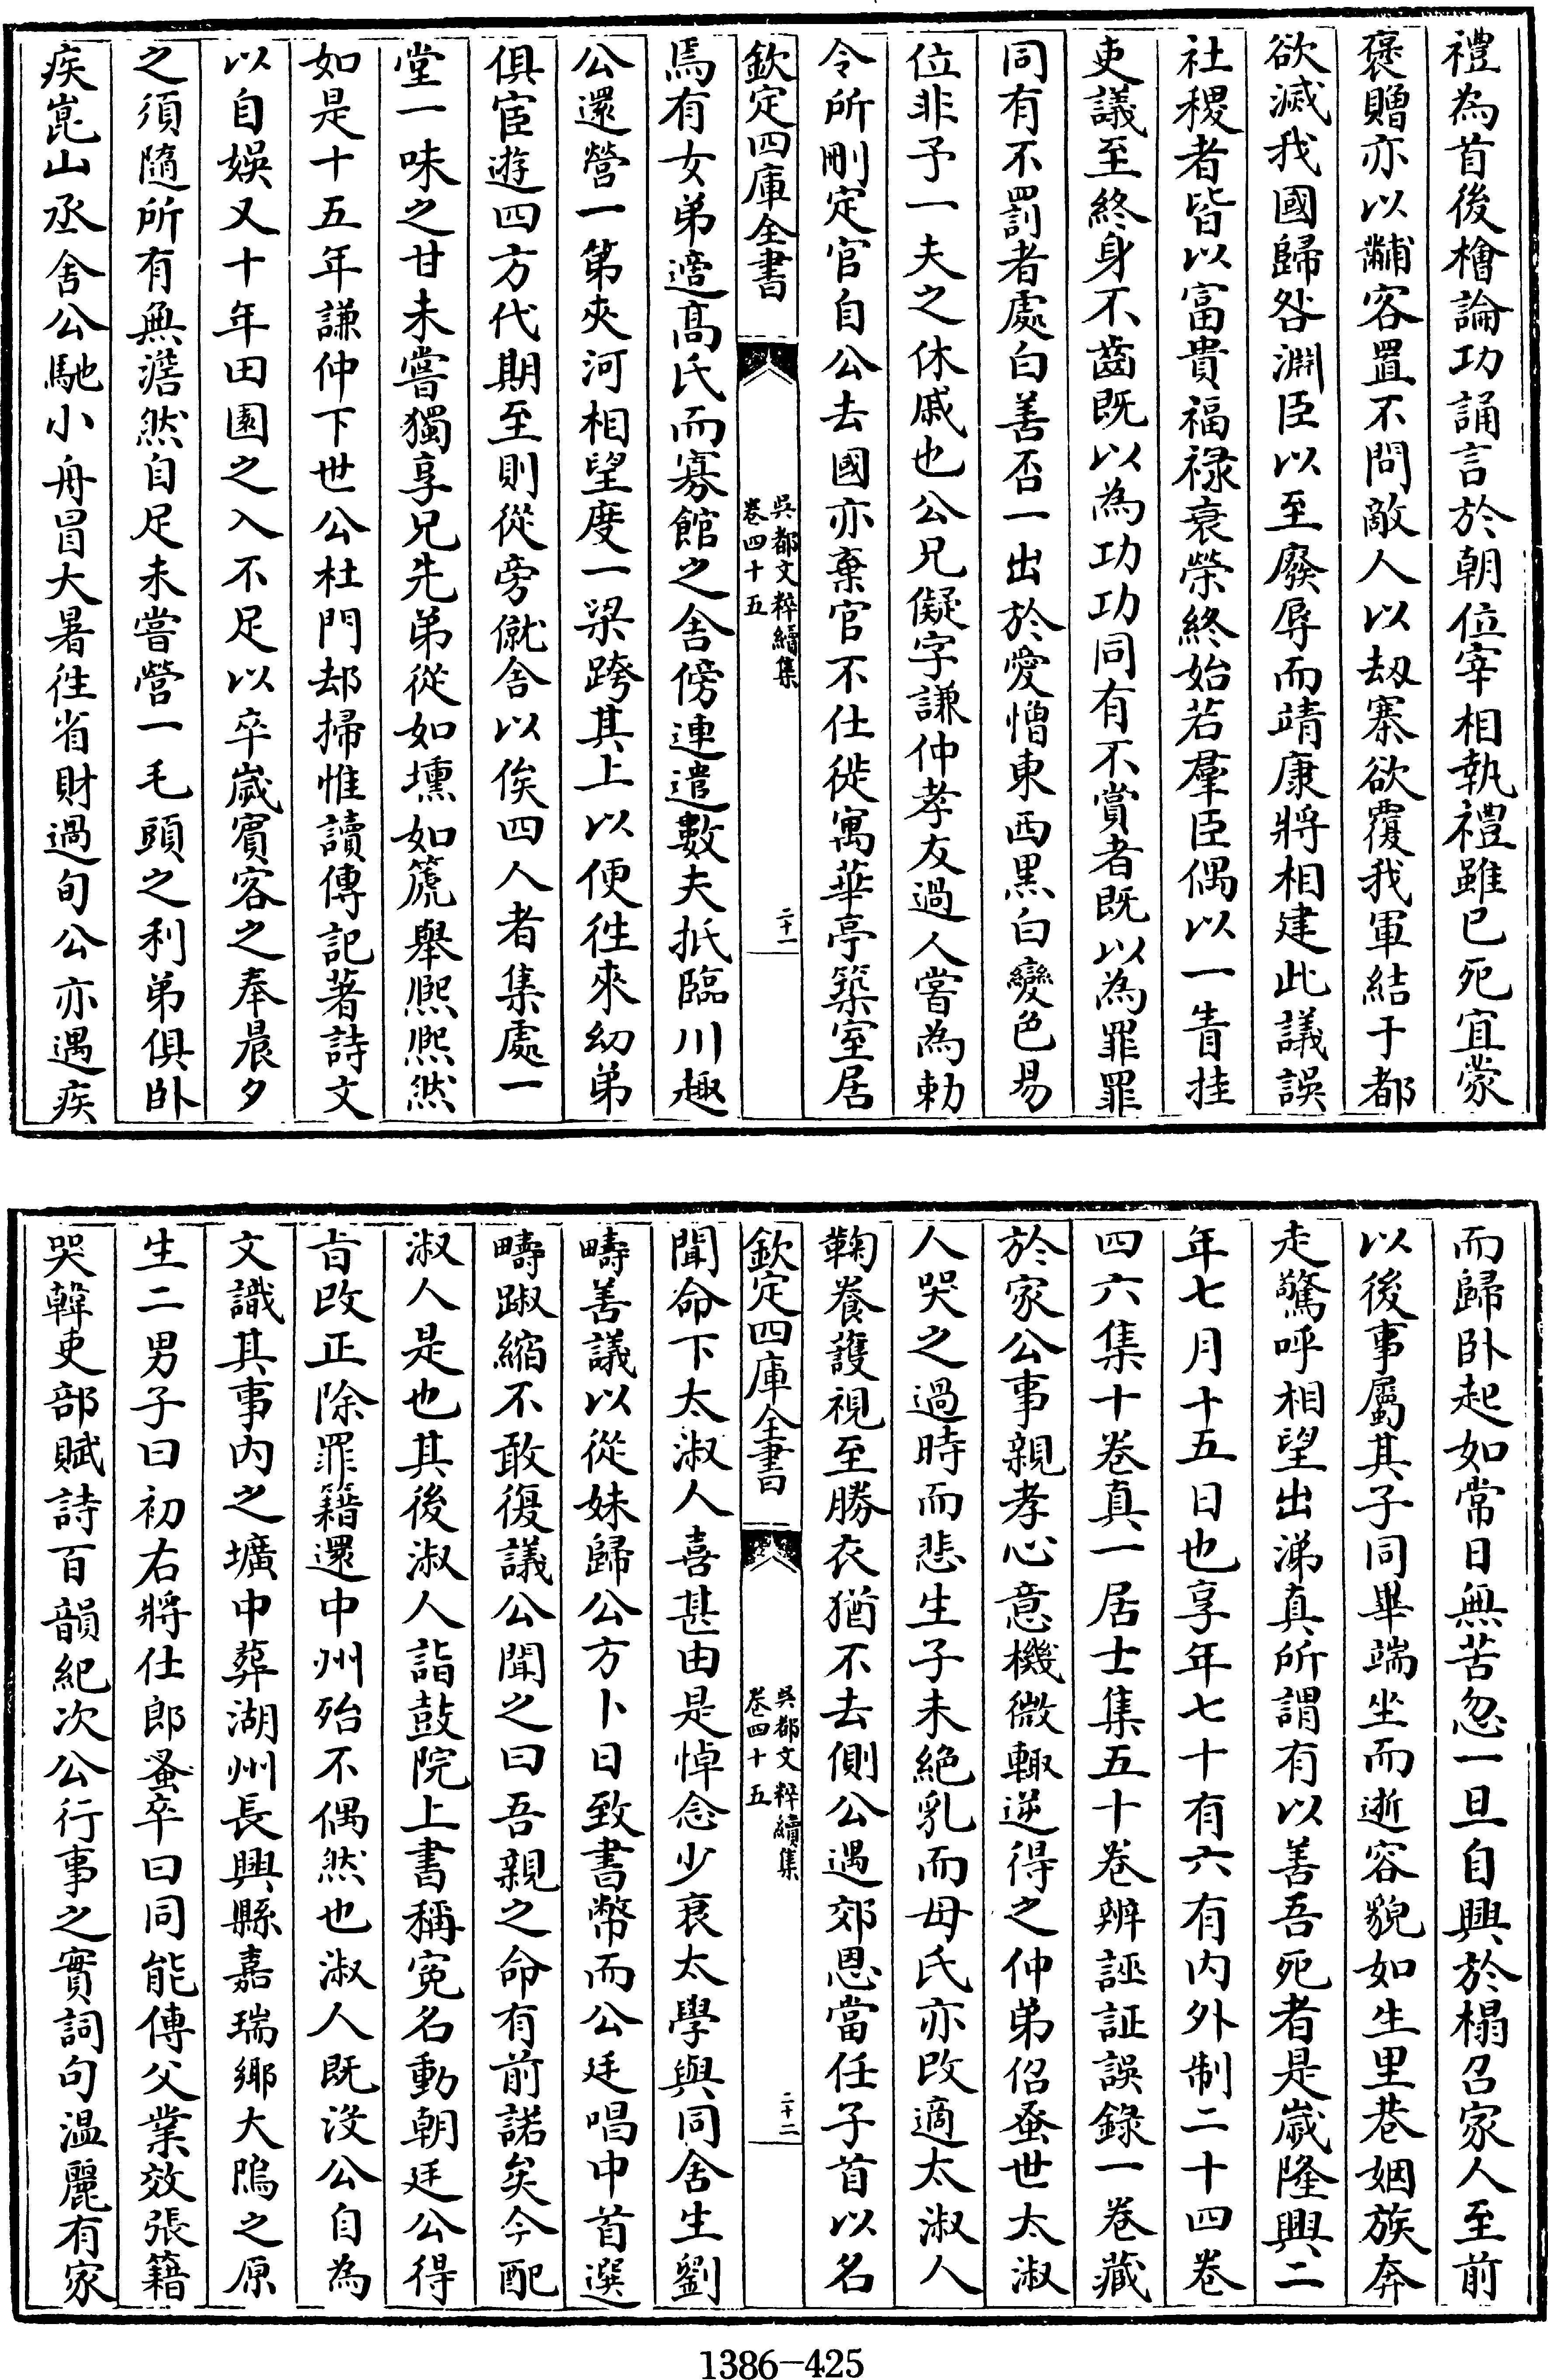 禮為首後檜論功誦言於朝位宰相執禮雖已死宜蒙
褒贈亦以黼客置不問敵人以刼寨欲覆我軍結于都
欲滅我國歸咎淵臣以至廢辱而靖康將相建此議誤
社稷者皆以富貴福祿哀榮終始若羣臣偶以一眚挂
吏議至終身不齒既以為功功同有不賞者既以為罪罪
同有不罰者處白善否一出於愛憎東西黑白變色易
位非予一夫之休戚也公兄儗字謙仲孝友過人嘗為勅
令所刪定官自公去國亦棄官不仕徙寓華亭築室居
欽定四庫全書
吳都文粹續集
卷四十五
二十一
焉有女弟適髙氏而寡館之舍傍連遣數夫扺臨川趣
公還營一第夾河相望度一梁跨其上以便徃來幼弟
俱宦遊四方代期至則從旁僦舍以俟四人者集處一
堂一味之甘未嘗獨享兄先弟從如壎如篪舉熈熈然
如是十五年謙仲下世公杜門却掃惟讀傳記著詩文
以自娛又十年田園之入不足以卒歲賓客之奉晨夕
之須隨所有無澹然自足未嘗營一毛頭之利弟俱卧
疾崑山丞舍公馳小舟冒大暑徃省財過旬公亦遇疾
而歸卧起如常日無苦忽一旦自興於榻召家人至前
以後事屬其子同畢端坐而逝容貌如生里巷姻族奔
走驚呼相望出涕真所謂有以善吾死者是歲隆興二
年七月十五日也享年七十有六有内外制二十四卷
四六集十卷真一居士集五十卷辨誣証誤錄一卷藏
於家公事親孝心意機微輙逆得之仲弟侶蚤世太淑
人哭之過時而悲生子未絶乳而母氏亦改適太淑人
鞠養護視至勝衣猶不去側公遇郊恩當任子首以名
欽定四庫全書
吳都文粹續集
卷四十五
二十二
聞命下太淑人喜甚由是悼念少衰太學與同舍生劉
疇善議以從妹歸公方卜日致書幣而公廷唱中首選
疇踧縮不敢復議公聞之曰吾親之命有前諾矣今配
淑人是也其後淑人詣鼓院上書稱寃名動朝廷公得
㫖改正除罪籍還中州殆不偶然也淑人既沒公自為
文識其事内之壙中葬湖州長興縣嘉瑞鄉大隖之原
生二男子曰初右將仕郎蚤卒曰同能傳父業效張籍
哭韓吏部賦詩百韻紀次公行事之實詞句温麗有家
1386-425